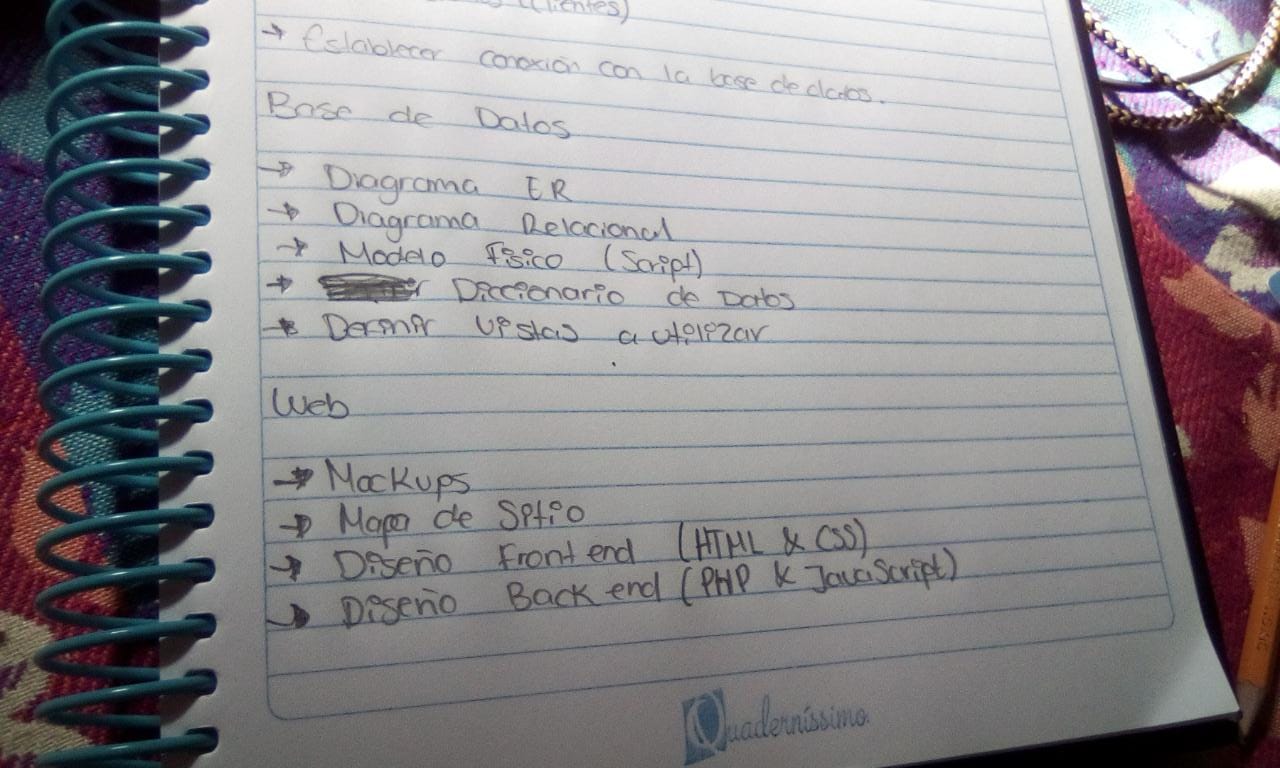 (Clientes)
→ Establecer conexión con la base de datos.
Base de Datos
→ Diagrama ER
→ Diagrama Relacional
→ Modelo Físico (Script)
→ Diccionario de Datos
→ vistas a utilizar
Web
→ Mockups
→ Mapa de Sitio
→ Diseño Front end (HTML & CSS)
→ Diseño Back end (PHP & JavaScript)
Quaderníssimo.